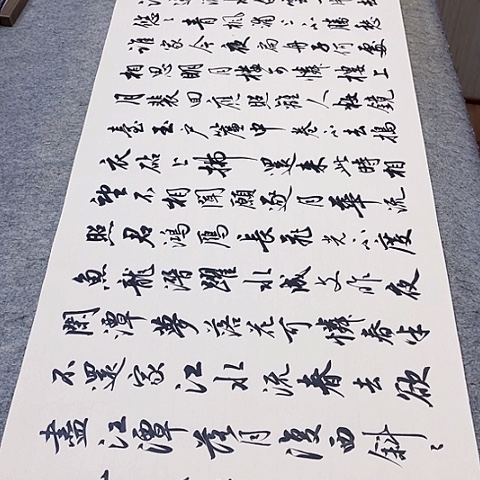 悠〻青楓浦上不勝愁
誰家今夜扁舟子何處
相思明月樓可憐樓上
月裴回應照離人妝鏡
臺玉戶簾中卷不去搗
衣砧上拂還來此時相
望不相聞願逐月華流
照君鴻雁長飛光不度
魚龍潛躍水成文昨夜
閑潭夢落花可憐春半
不還家江水流春去欲
盡江潭落月復西斜〻